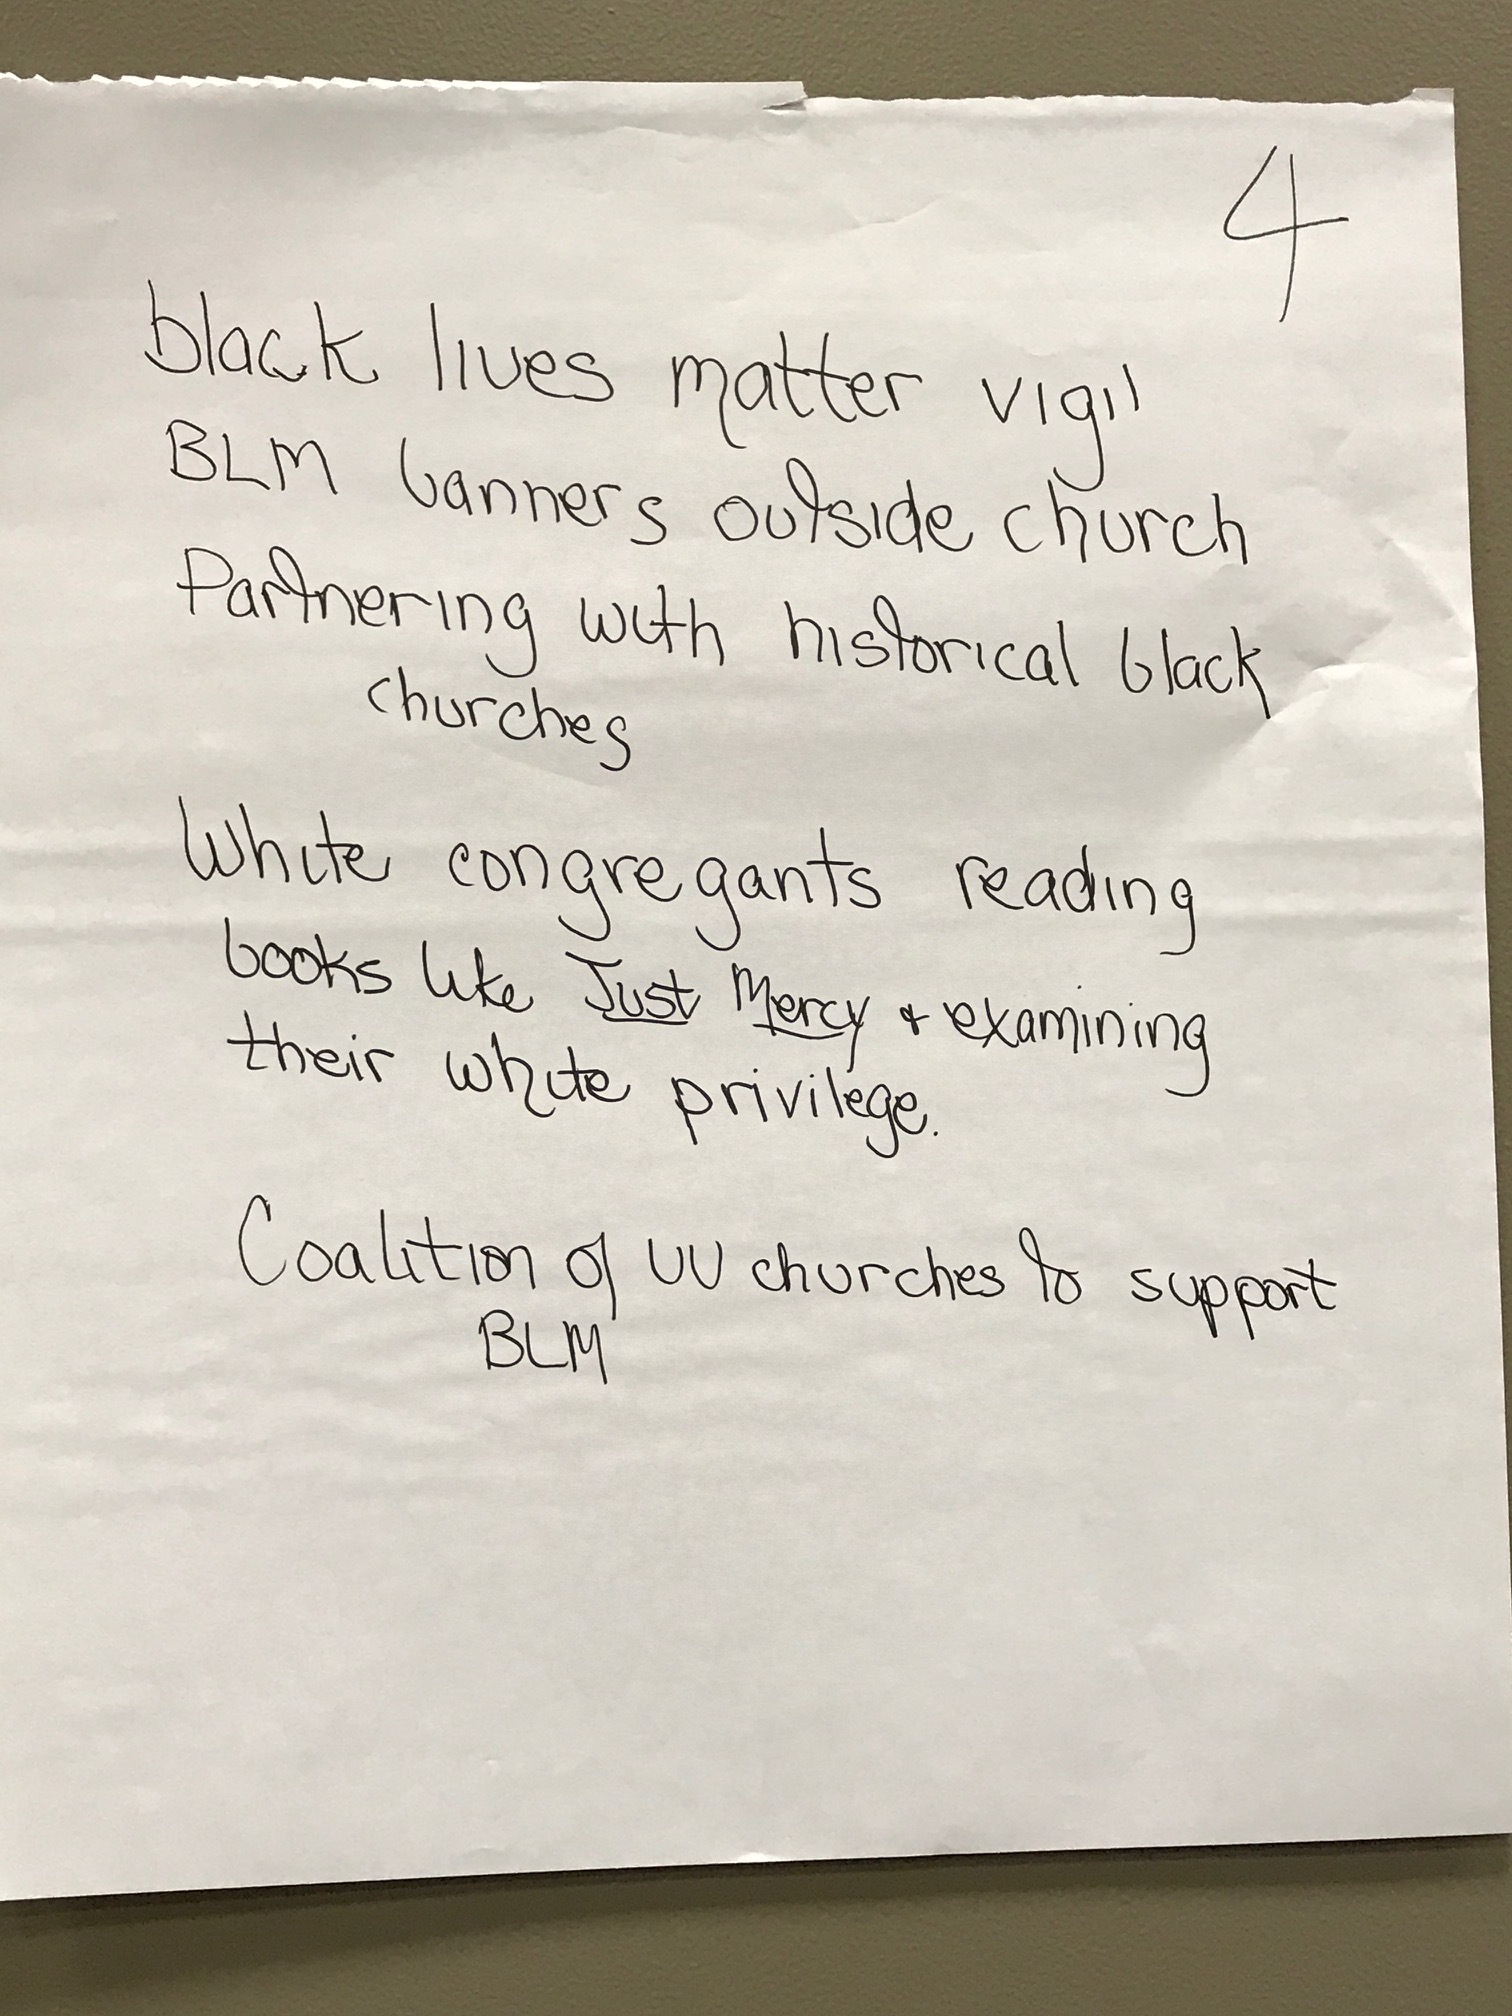 4
black lives matter vigil
BLM banners outside church
Partnering with historical black
churches
White congregants reading
books like Just Mercy & examining
their white privilege.
Coalition of UU churches to support
BLM